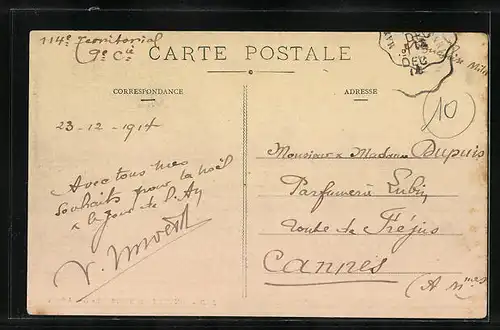 114e Territorial
9e Cie
CARTE POSTALE
CORRESPONDANCE
ADRESSE
DEC
14
10
23-12-1914
Avec tous mes
souhaits pour la noël
& le jour de l'An
Monsieur & Madame Dupuis
Parfumerie Lubin
route de Fréjus
Cannes
(A Mmes)